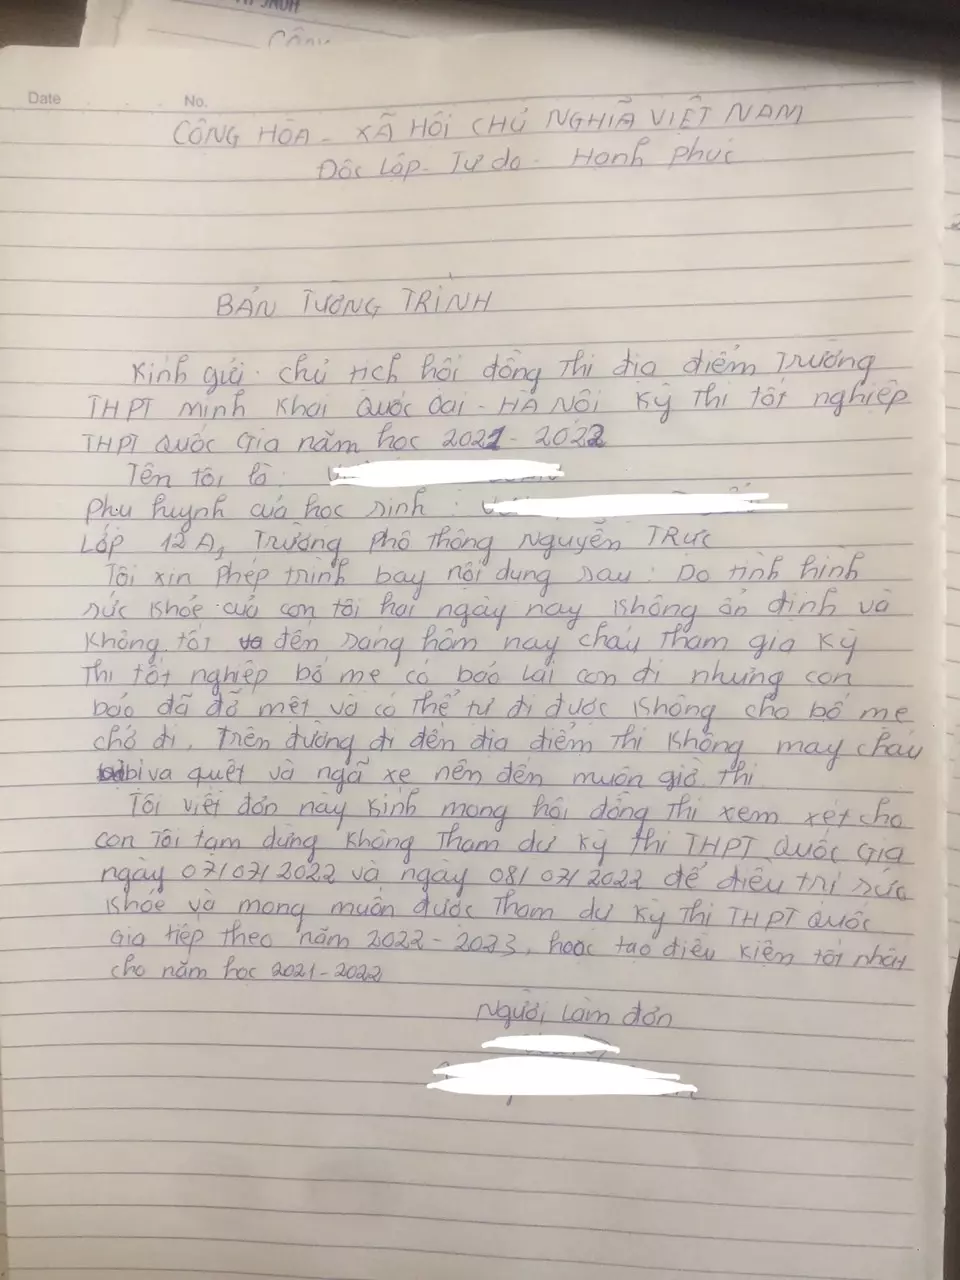 Date No.
CỘNG HÒA - XÃ HỘI CHỦ NGHĨA VIỆT NAM
Độc Lập - Tự do - Hạnh phúc
BẢN TƯỜNG TRÌNH
Kính gửi: chủ tịch hội đồng thi địa điểm Trường
THPT minh Khai Quốc Oai - HÀ NỘI Kỳ Thi tốt nghiệp
THPT Quốc Gia năm học 2021 - 2022
Tên tôi là:
phụ huynh của học sinh:
Lớp 12A1 Trường phổ thông Nguyễn TRực
Tôi xin phép trình bày nội dung sau: Do tình hình
sức khỏe của con tôi hai ngày nay không ổn định và
không tốt đến sáng hôm nay cháu tham gia kỳ
thi tốt nghiệp bố mẹ có bảo lai con đi nhưng con
bảo đã đỡ mệt và có thể tự đi được không cho bố mẹ
chở đi, Trên đường đi đến địa điểm thi không may cháu
bị va quệt và ngã xe nên đến muộn giờ thi
Tôi viết đơn này kính mong hội đồng thi xem xét cho
con tôi tạm dừng không tham dự kỳ thi THPT Quốc Gia
ngày 07/07/2022 và ngày 08/07/2022 để điều trị sức
khỏe và mong muốn được tham dự kỳ thi THPT Quốc
Gia tiếp theo năm 2022 - 2023, hoặc tạo điều kiện tốt nhất
cho năm học 2021 - 2022
Người làm đơn